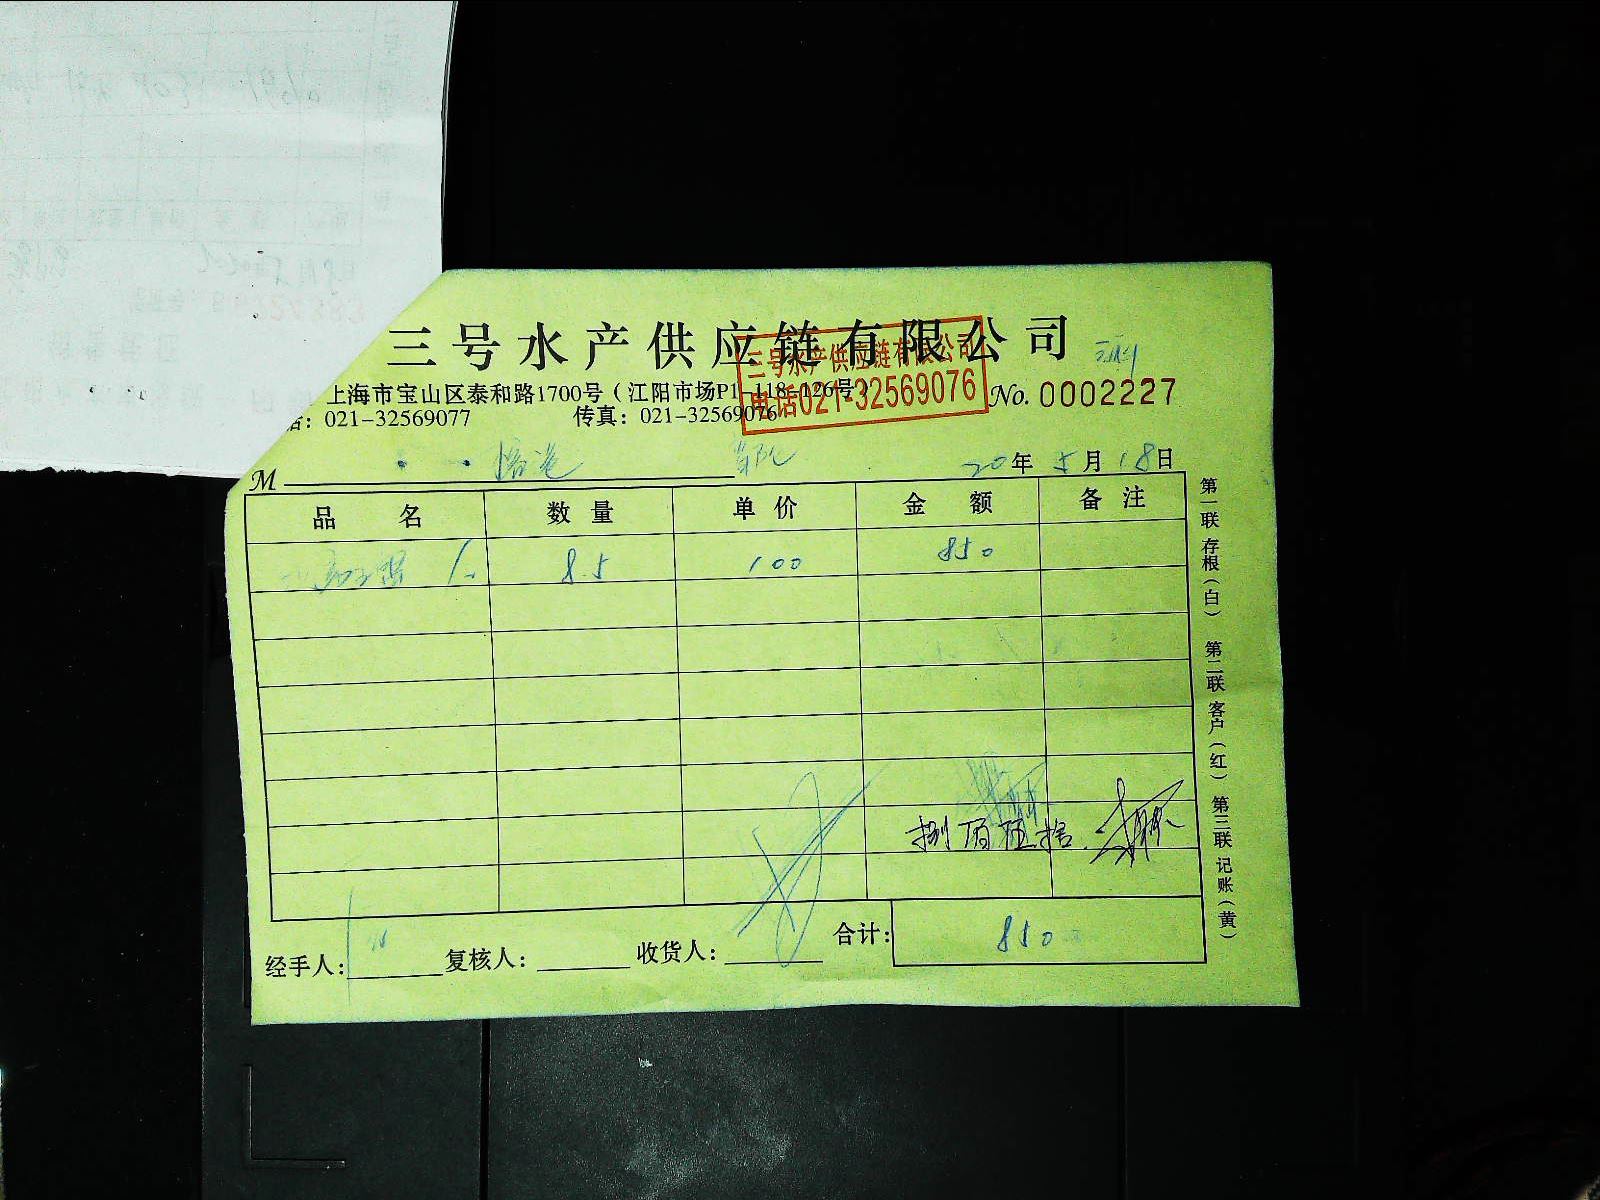 三号水产供应链有限公司
三号水产供应链有限公司
电话021-32569076
上海市宝山区泰和路1700号（江阳市场P1-118-126号）
No. 0002227
话：021-32569077 传真：021-32569076
M
20年5月18日
品名 数量 单价 金额 备注
8.5 100 850
捌佰伍拾
经手人： 复核人： 收货人： 合计： 850
第一联 存根（白） 第二联 客户（红） 第三联 记账（黄）